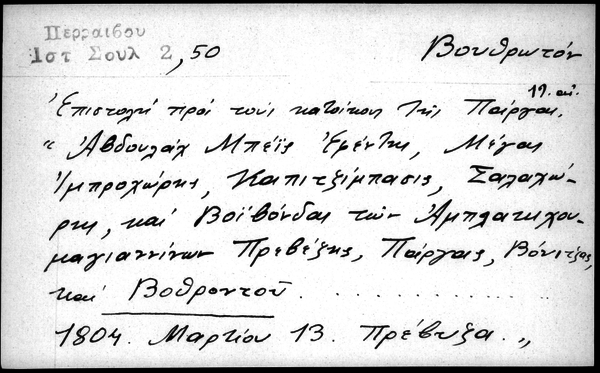 Περραιβου
Ιστ Σουλ 2,50
Βουθρωτόν
19. αἰ.
Ἐπιστολή πρός τούς κατοίκους τῆς Πάργας.
" Ἀβδουλάχ Μπέϊς Ἐφέντης, Μέγας
Ἰμπροχώρης, Καπιτζίμπασις, Σαλαχώ-
ρης, καί Βοϊβόνδας τῶν
μαγιαννίνων Πρεβέζης, Πάργας, Βόνιτζας,
καί Βοθροντοῦ . . . . . . . . . . .
1804. Μαρτίου 13. Πρέβυζα. "